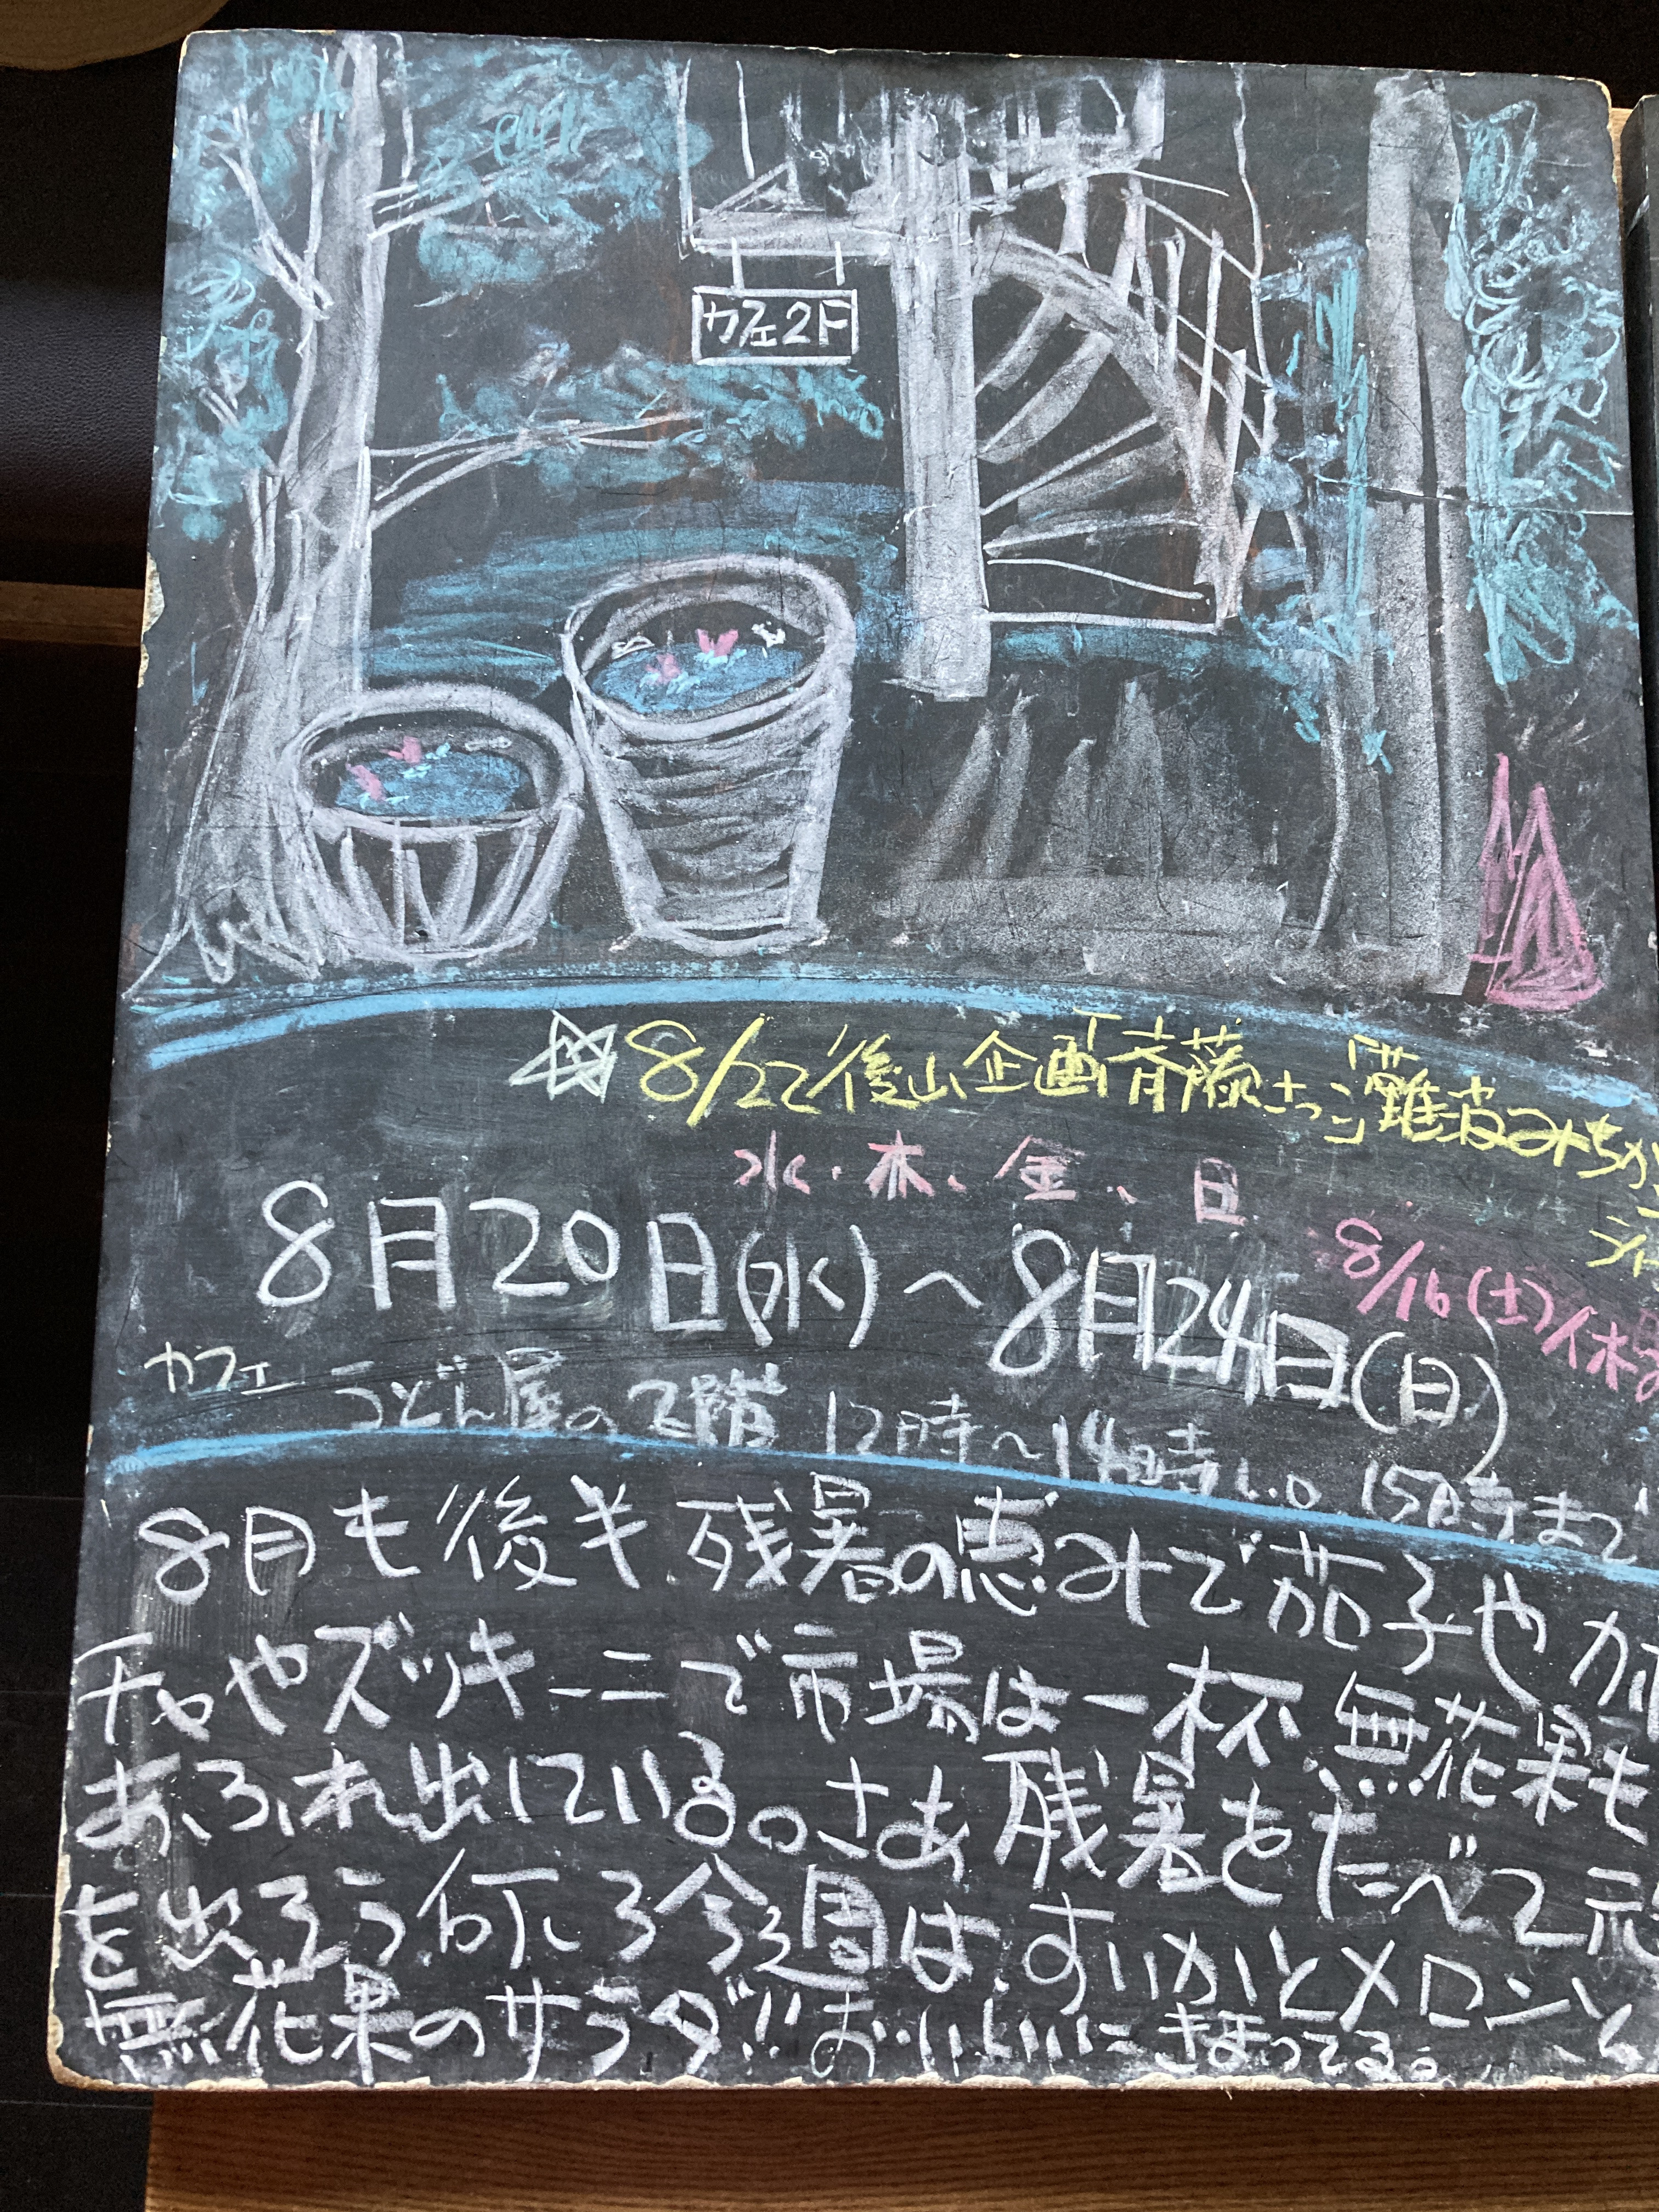 カフェ2F
☆8/22後山企画「斉藤さっこ」「灘波みちか
水・木、金、日
8月20日(水)〜8月24日(日)
8/16(土)休
カフェ うどん屋の2階 12時〜14時L.O 15時まで
8月も後半 残暑の恵みで茄子やカボ
チャやズッキーニで市場は一杯.無花果も
あふれ出している。さあ残暑をたべて元
を出そう 今週は すいかとメロンと
無花果のサラダ!!おいしいにきまってる。